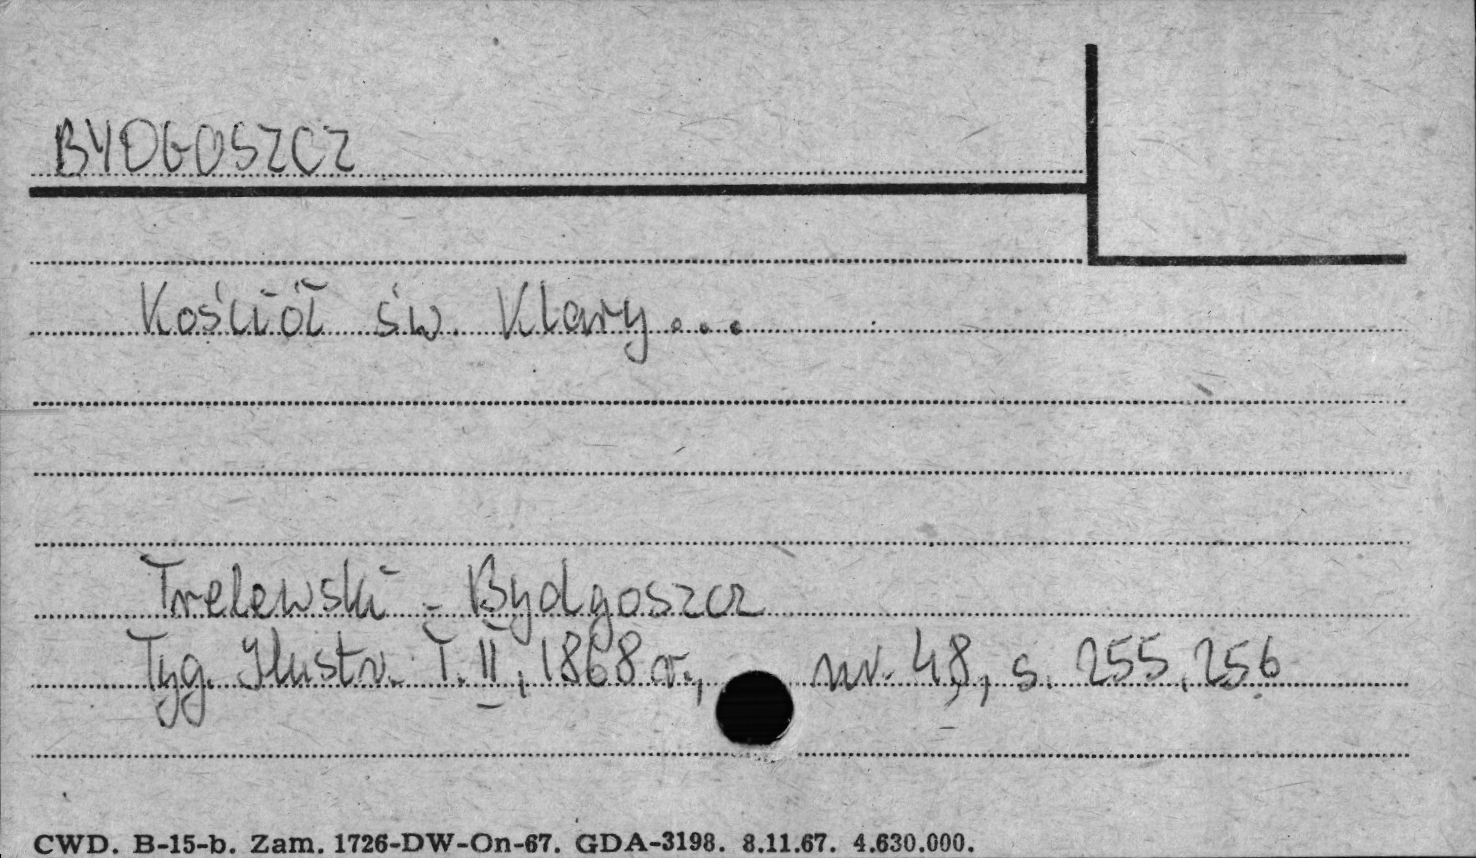 BYDGOSZCZ
Kościół św. Klary...
Trelewski - Bydgoszcz
Tyg. Ilustr. T. II, 1868 r., nr. 48, s. 255, 256
CWD. B-15-b. Zam. 1726-DW-On-67. GDA-3198. 8.11.67. 4.630.000.